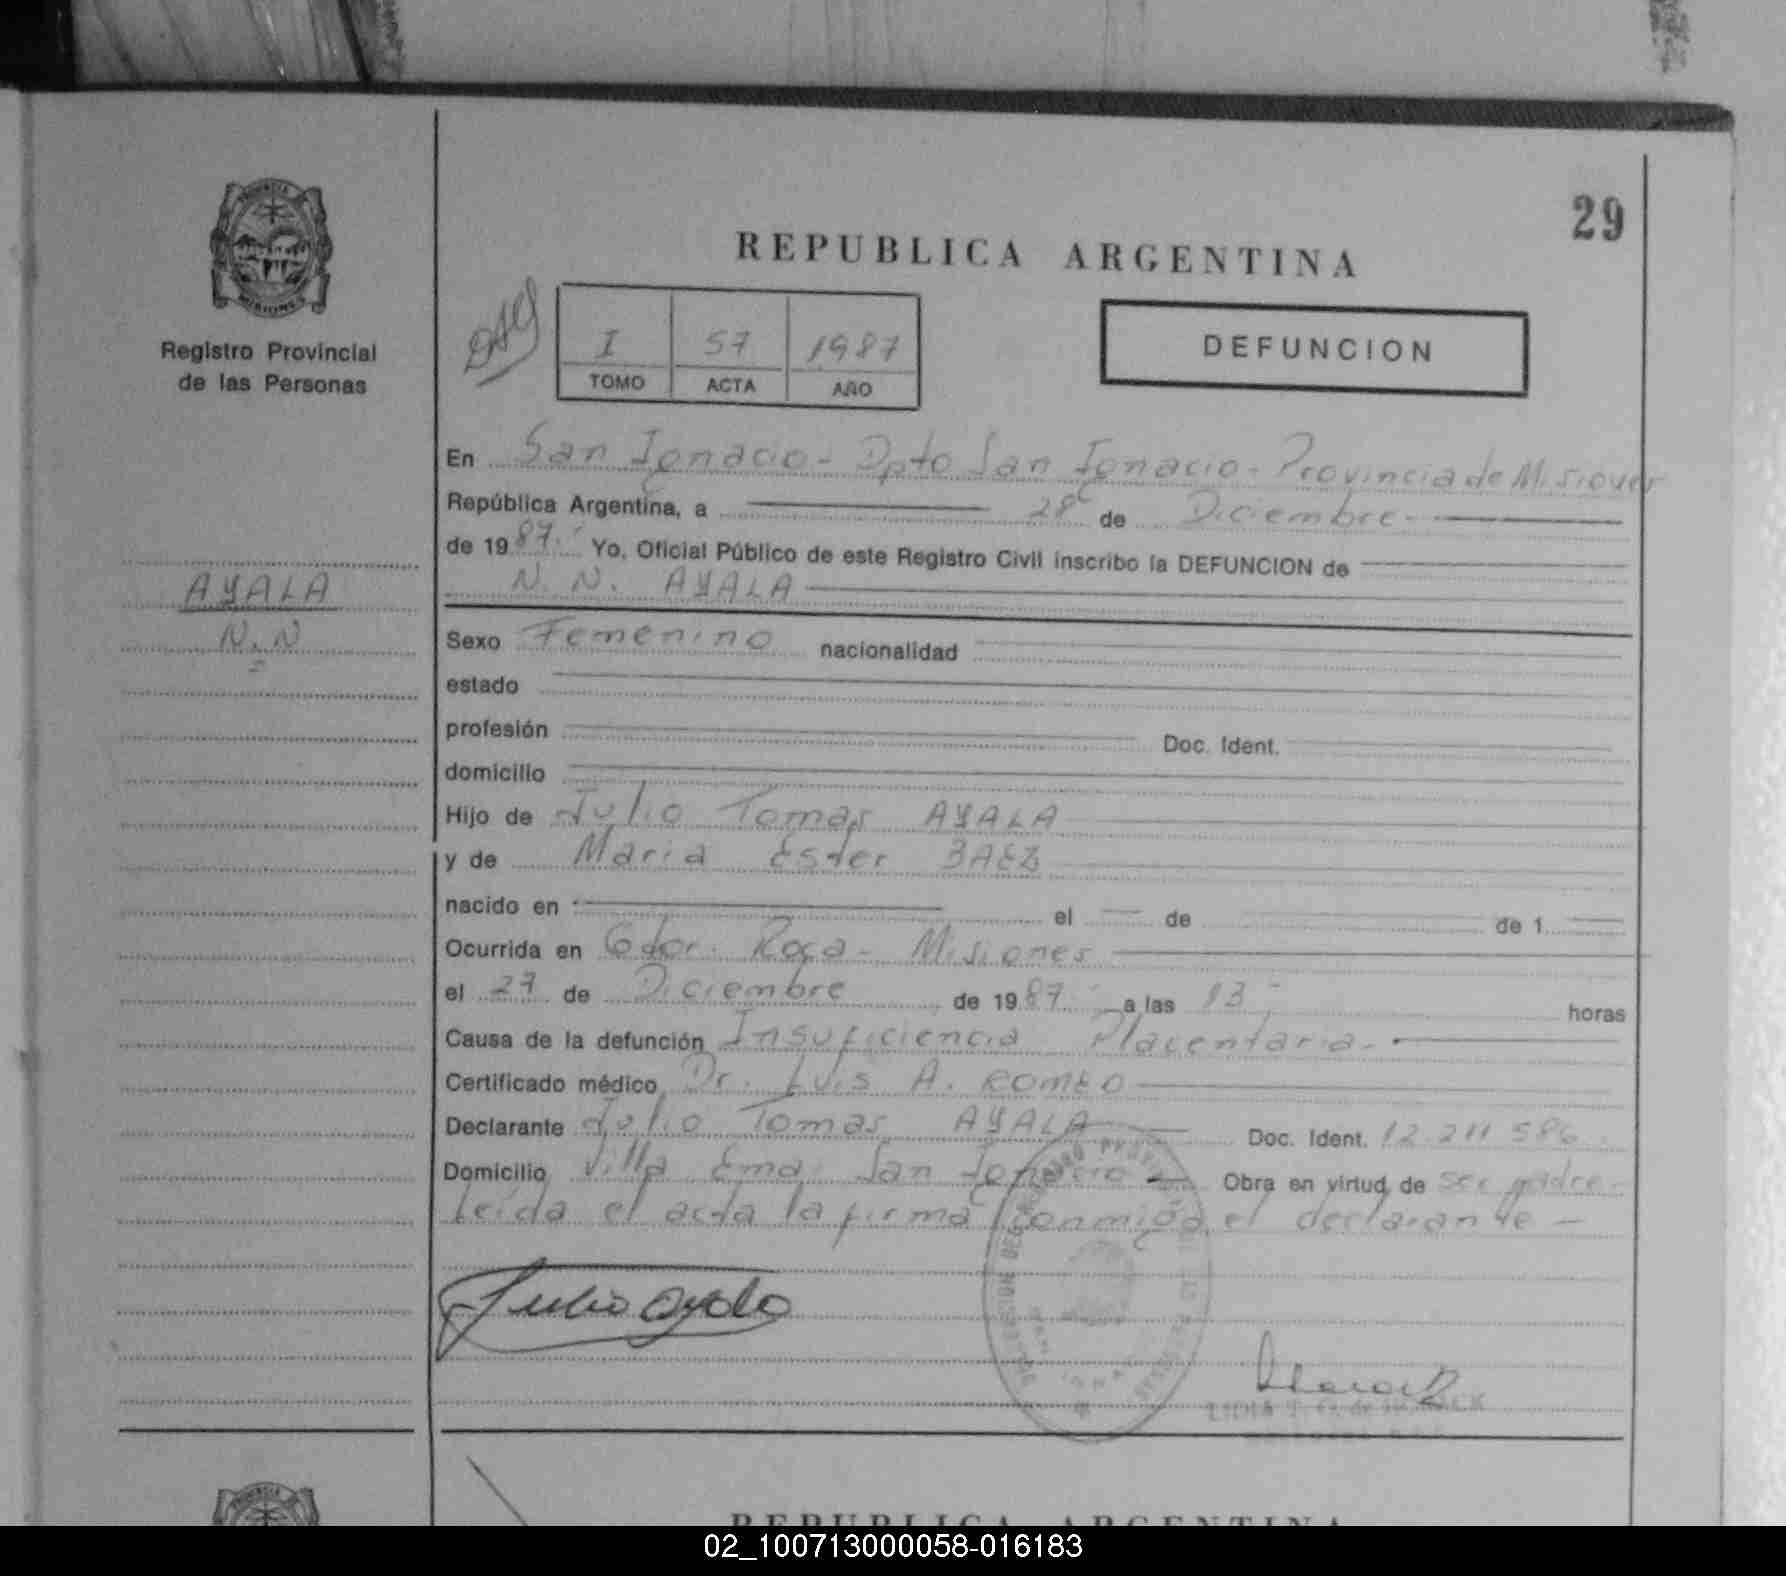 29
REPUBLICA ARGENTINA
PROVINCIA
MISIONES
Registro Provincial
de las Personas
I 57 1987
TOMO ACTA AÑO
DEFUNCION
En San Ignacio - Dpto San Ignacio - Provincia de Misiones
República Argentina, a 28 de Diciembre
de 1987.- Yo, Oficial Público de este Registro Civil inscribo la DEFUNCION de
N. N. AYALA
AYALA
N.N
Sexo Femenino nacionalidad
estado
profesión Doc. Ident.
domicilio
Hijo de Julio Tomas AYALA
y de Maria Ester BAEZ
nacido en el de de 1
Ocurrida en Gdor. Roca - Misiones
el 27 de Diciembre de 1987.- a las 13.- horas
Causa de la defunción Insuficiencia Placentaria.-
Certificado médico Dr. Luis A. ROMEO
Declarante Julio Tomas AYALA Doc. Ident. 12.211.586
Domicilio Villa Ema San Ignacio Obra en virtud de ser padre -
Leída el acta la firma conmigo el declarante -
Julio Ayala
REPUBLICA ARGENTINA
02_100713000058-016183